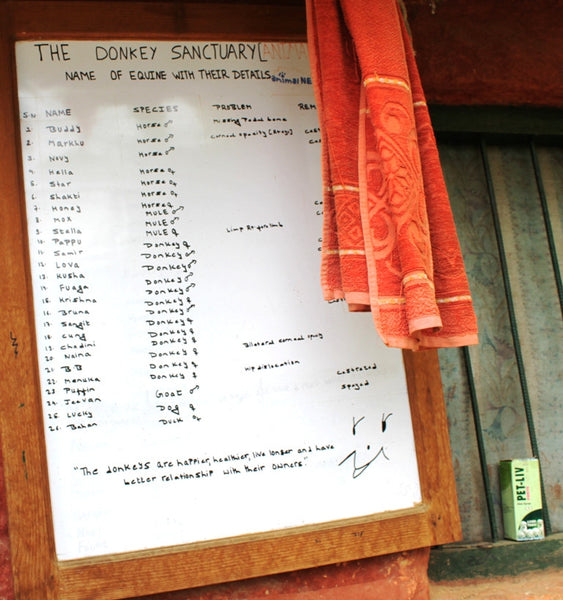 THE DONKEY SANCTUARY [ANIMA
NAME OF EQUINE WITH THEIR DETAILS animal NE
S.N NAME SPECIES PROBLEM REM
1. Buddy Horse ♂ Missing Pedal bone
2. Markhu Horse ♂ Corneal opacity Cast
3. Novy Horse ♂ Ca
4. Hella Horse ♀
5. Star Horse ♀
6. Shakti Horse ♀
7. Honey Horse ♀
8. Mox MULE ♂
9. Stella MULE ♀
10. Pappu MULE ♀ Limp Rt forelimb
11. Samir Donkey ♂
12. Lova Donkey ♂
13. Kusha Donkey ♂
14. Fuaga Donkey ♂
15. Krishna Donkey ♀
16. Bruna Donkey ♂
17. Sengit Donkey ♀
18. Cung Donkey ♀
19. Chadini Donkey ♀
20. Naina Donkey ♀ Bilateral corneal opacity
21. BB Donkey ♀
22. Menuka Donkey ♀ Hip dislocation
23. Puffin Donkey ♀
24. Jeevan Goat ♂ Castrated
25. Lucky Dog ♀ Spayed
26. Bahan Duck ♀
"The donkeys are happier, healthier, live longer and have
better relationship with their owners."
PET-LIV